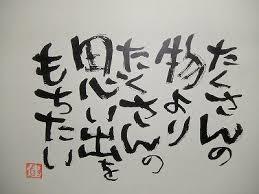 たくさんの
物より
たくさんの
思い出を
もちたい